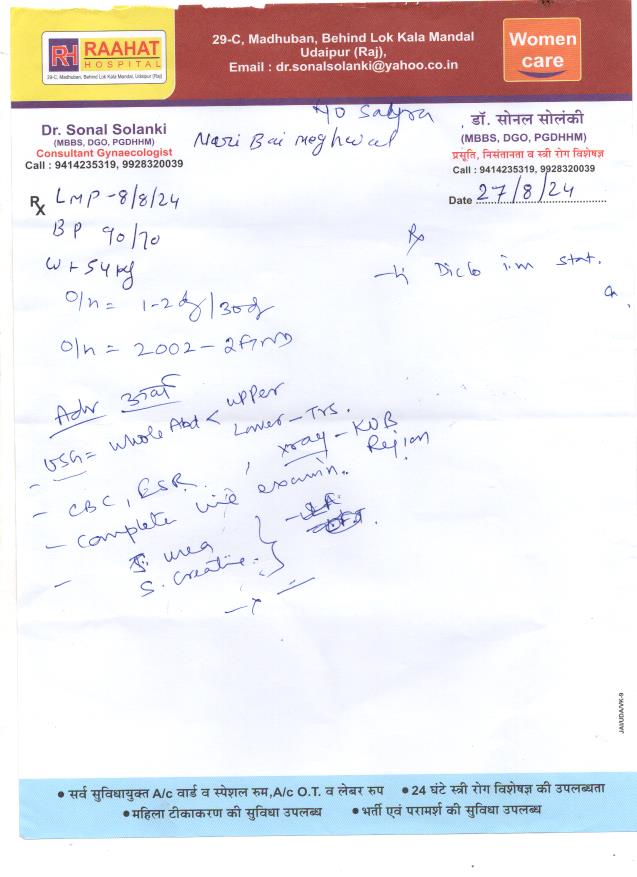 RH RAAHAT
HOSPITAL
29-C, Madhuban, Behind Lok Kala Mandal, Udaipur (Raj)
29-C, Madhuban, Behind Lok Kala Mandal
Udaipur (Raj),
Email : dr.sonalsolanki@yahoo.co.in
Women
care
Dr. Sonal Solanki
(MBBS, DGO, PGDHHM)
Consultant Gynaecologist
Call : 9414235319, 9928320039
Nari Bai meghwal
डॉ. सोनल सोलंकी
(MBBS, DGO, PGDHHM)
प्रसूति, निसंतानता व स्त्री रोग विशेषज्ञ
Call : 9414235319, 9928320039
Date 27/8/24
Rx LMP - 8/8/24
BP 90/70
Wt 54 kg
Rx
Diclo i.m stat.
O/n = 1-2 /30
O/n = 2002 -
Adv
USG = Whole Abd < upper
Lower - Trs.
- CBC, ESR. xray - KUB
Region
- Complete examin.
- S. urea
S. Creatine
JAI/UDA/VK-9
• सर्व सुविधायुक्त A/c वार्ड व स्पेशल रुम,A/c O.T. व लेबर रुप • 24 घंटे स्त्री रोग विशेषज्ञ की उपलब्धता
• महिला टीकाकरण की सुविधा उपलब्ध • भर्ती एवं परामर्श की सुविधा उपलब्ध